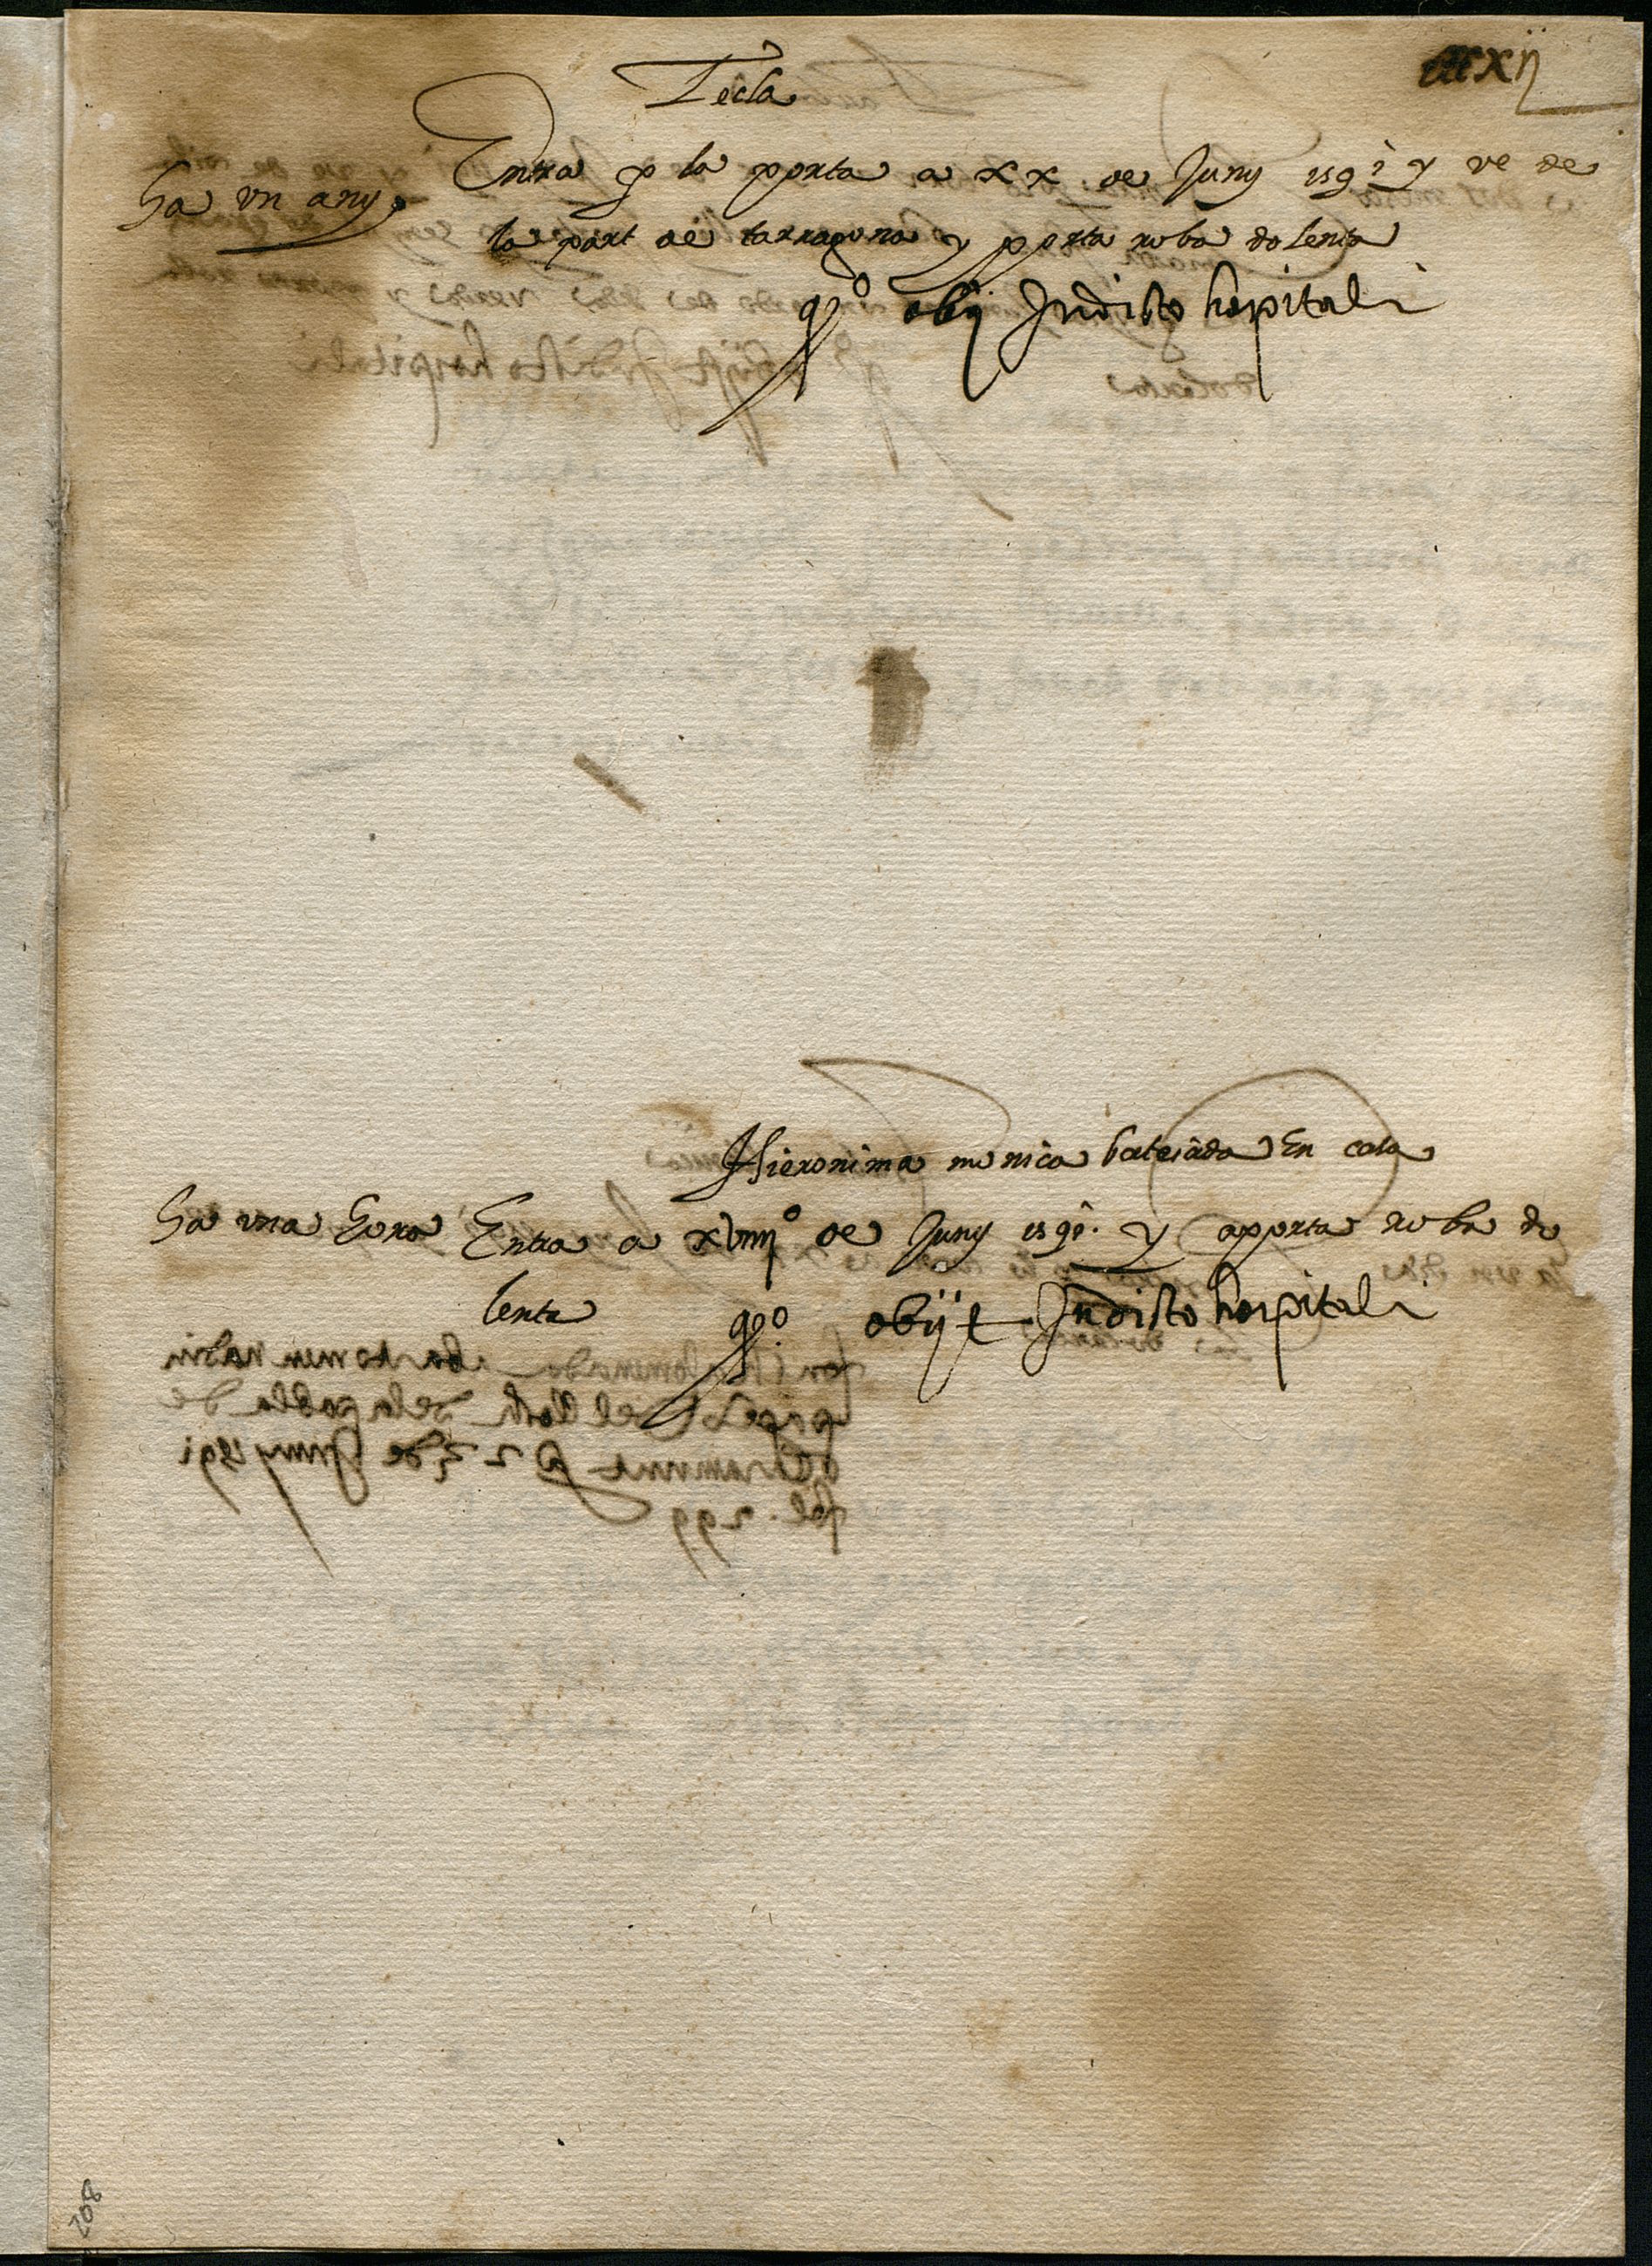 cccxij
Tecla
Ha vn any.
Entra p la porta a xx de Juny 1591 y ve de
la part de tarragona y porta roba dolenta
qº obij In dicto hospitali
Hieronima monica bateiada En casa
Ha vna hora Entra a xviiijº de Juny 1591. y aporta roba do
lenta qº. obijt In dicto hospitali
208